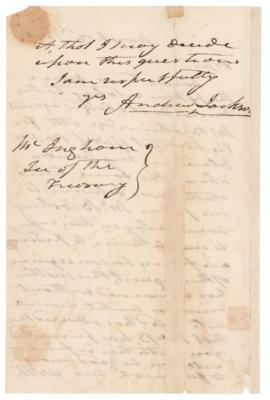 it, that I may decide
upon this question
I am respectfully
yrs Andrew Jackson
Mr Ingham
Sec of the
Treasury